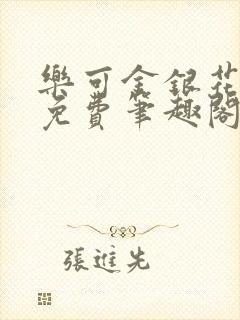 樂可金銀花
免費筆趣閣
張進先